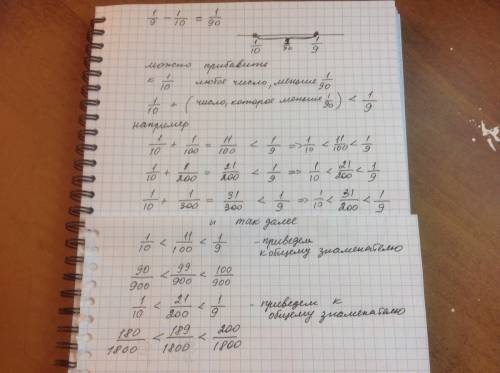 1/9 − 1/10 = 1/90
1/10 9/90 1/9
можно прибавить
к 1/10 любое число, меньше 1/90
1/10 + (число, которое меньше 1/90) < 1/9
например
1/10 + 1/100 = 11/100 < 1/9 => 1/10 < 11/100 < 1/9
1/10 + 1/200 = 21/200 < 1/9 => 1/10 < 21/200 < 1/9
1/10 + 1/300 = 31/300 < 1/9 => 1/10 < 31/200 < 1/9
и так далее
1/10 < 11/100 < 1/9 - приведем к общему знаменателю
90/900 < 99/900 < 100/900
1/10 < 21/200 < 1/9 - приведем к общему знаменателю
180/1800 < 189/1800 < 200/1800